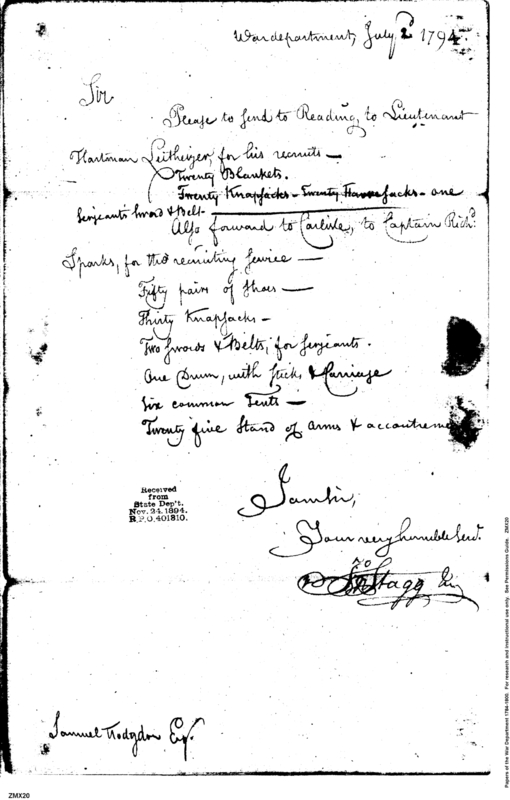 War department, July 2d 1794
Sir
Please to send to Reading, to Lieutenant
Hartman Leitheizer, for his recruits —
Twenty Blankets.
Twenty Knapsacks - Twenty Haversacks - one
Serjeants Sword & Belt -
Also forward to Carlisle, to Captain Richd.
Sparks, for the recruiting service —
Fifty pairs of Shoes —
Thirty Knapsacks —
Two Swords & Belts, for Serjeants.
One Drum, with sticks & Carriage
Six common Tents —
Twenty five Stand of arms & accoutreme
Received
from
State Dep't.
Nov. 24, 1894.
R.P.O. 401810.
I am Sir,
Your very humble Servt.
Jno Stagg
Samuel Hodgdon Esqr.
ZMX20
Papers of the War Department 1784-1800. For research and instructional use only. See Permissions Guide. ZMX20